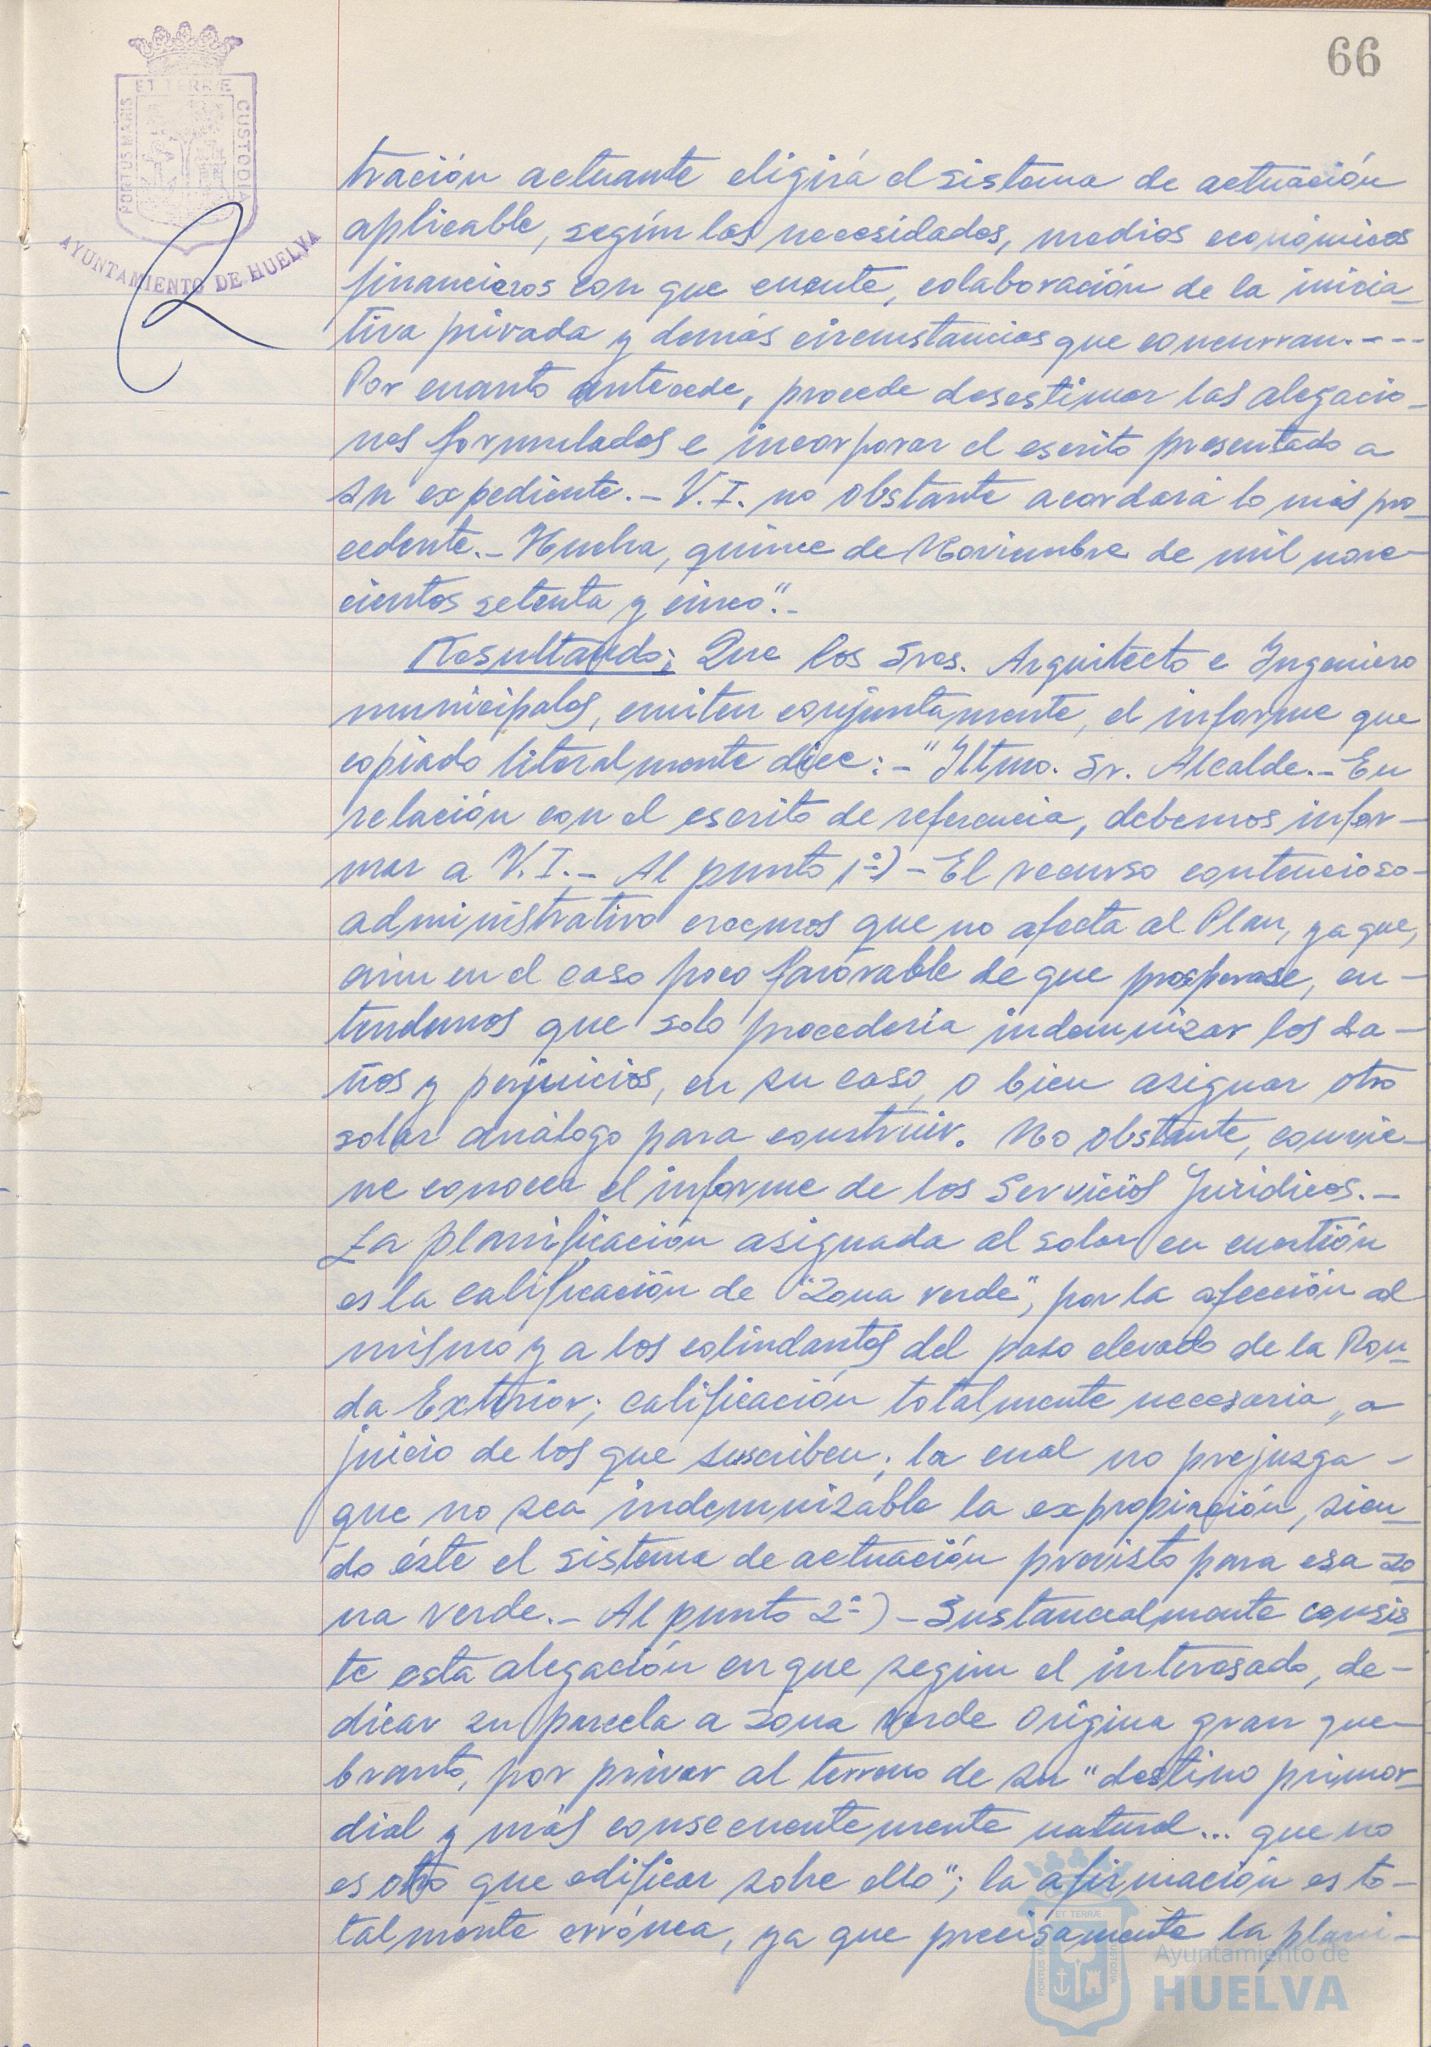 66
ET TERRÆ
PORTUS MARIS
CUSTODIA
AYUNTAMIENTO DE HUELVA
tración actuante eligirá el sistema de actuación
aplicable, según las necesidades, medios económicos
financieros con que cuente, colaboración de la inicia-
tiva privada y demás circunstancias que concurran.----
Por cuanto antecede, procede desestimar las alegacio-
nes formuladas e incorporar el escrito presentado a
su expediente.- V.I. no obstante acordará lo más pro-
cedente.- Huelva, quince de Noviembre de mil nove-
cientos setenta y cinco".-
Resultando: Que los Sres. Arquitecto e Ingeniero
municipales, emiten conjuntamente, el informe que
copiado literalmente dice:- "Iltmo. Sr. Alcalde.- En
relación con el escrito de referencia, debemos infor-
mar a V.I.- Al punto 1º)- El recurso contencioso-
administrativo creemos que no afecta al Plan, ya que,
aún en el caso poco favorable de que prosperase, en-
tendemos que solo procedería indemnizar los da-
ños y perjuicios, en su caso, o bien asignar otro
solar análogo para construir. No obstante, convie-
ne conocer el informe de los Servicios Jurídicos.-
La planificación asignada al solar en cuestión
es la calificación de "Zona verde", por la afección al
mismo y a los colindantes del paso elevado de la Ron-
da Exterior; calificación totalmente necesaria, a
juicio de los que suscriben; la cual no prejuzga-
que no sea indemnizable la expropiación, sien-
do éste el sistema de actuación previsto para esa zo-
na verde.- Al punto 2º)- Sustancialmente consis-
te esta alegación en que según el interesado, de-
dicar su parcela a zona verde origina gran que-
branto, por privar al terreno de su "destino primor-
dial y más consecuentemente natural... que no
es otro que edificar sobre ello"; la afirmación es to-
talmente errónea, ya que precisamente la plani-
ET TERRÆ
PORTUS MARIS
CUSTODIA
Ayuntamiento de
HUELVA